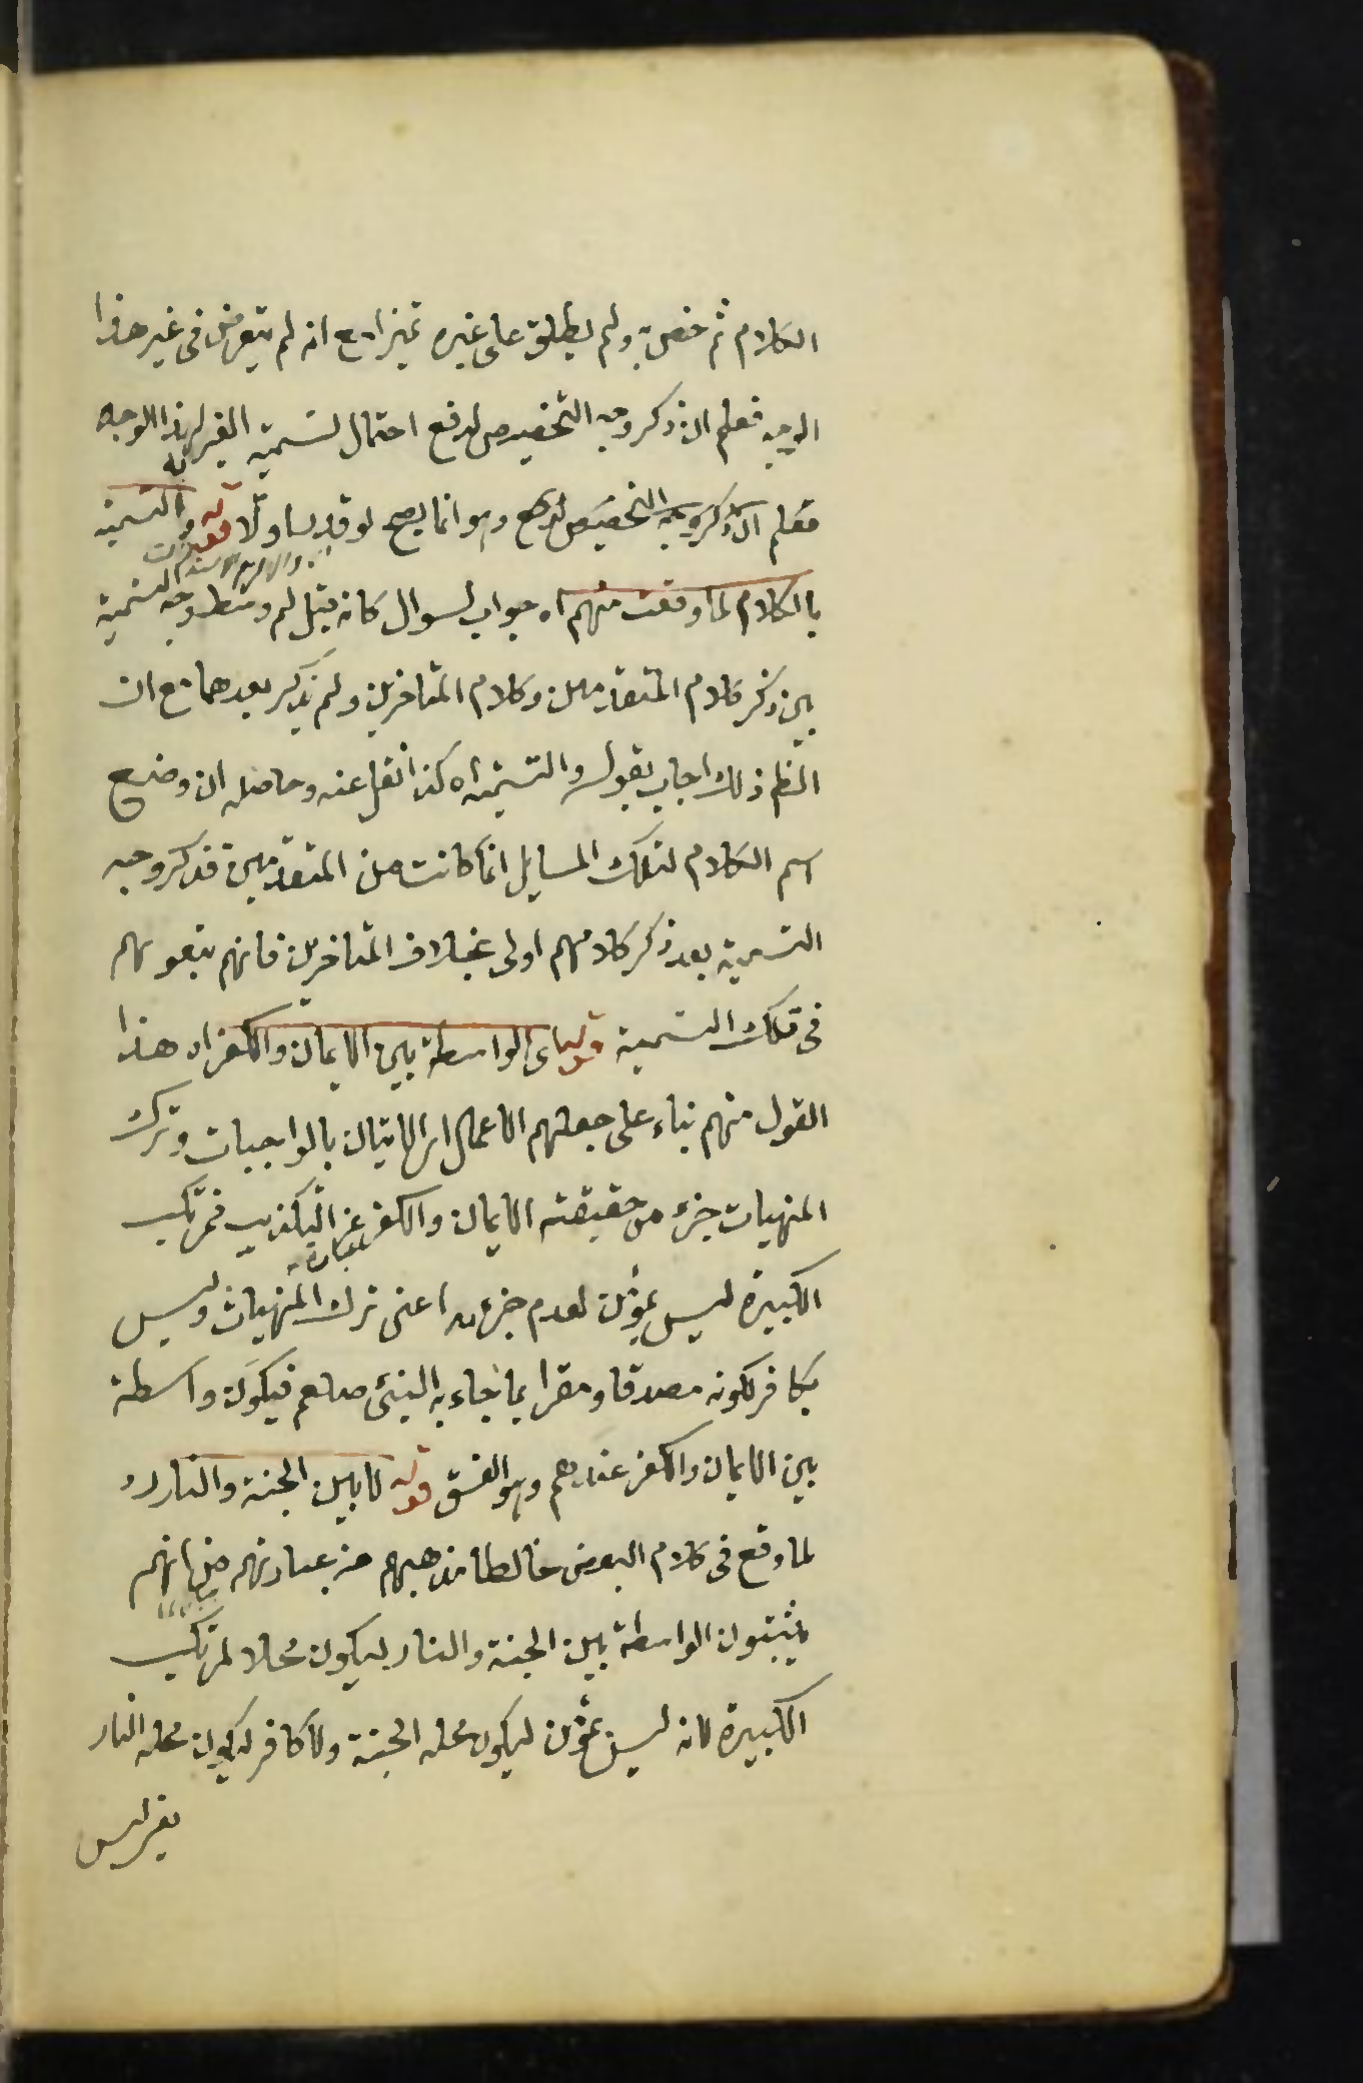 الكلام ثم خص به ولم يطلق على غيره تميزا مع انه لم يتعرض فى غير هذا
الوجه فعلم ان ذكر وجه التخصيص لدفع احتمال تسمية الغير لهذا الوجه
فعلم ان ذكر وجه التخصيص وهو انما يصح لو قوله والتسمية
بالكلام لما وقعت منهم اه جواب لسوال كانه قيل لم وجه التسمية
بين ذكر كلام المتقدمين وكلام المتاخرين ولم يذكر بعدهما مع ان
الظ ذلك اجاب بقوله والتسمية اه كذا نقل عنه وحاصله ان وضع
اسم الكلام لتلك المسايل انما كانت من المتقدمين فذكر وجه
التسمية بعد ذكر كلامهم اولى بخلاف المتاخرين فانهم تبعوهم
فى تلك التسمية قوله اى الواسطة بين الايمان والكفر اه هذا
القول منهم بناء على جعلهم الاعمال اى الاتيان بالواجبات وترك
المنهيات جزء من حقيقة الايمان والكفر عبارة عن التكذيب فمرتكب
الكبيرة ليس بمؤمن لعدم جزءه اعنى ترك المنهيات وليس
بكافر لكونه مصدقا ومقرا بما جاء به النبى صلعم فيكون واسطة
بين الايمان والكفر عندهم وهو الفسق قوله لا بين الجنة والنار رد
لما وقع فى كلام البعض غالطا مذهبهم من عبارتهم من انهم
يثبتون الواسطة بين الجنة والنار ليكون محلا لمرتكب
الكبيرة لانه ليس بمؤمن ليكون محله الجنة ولا كافر ليكون محله النار
يعنى ليس